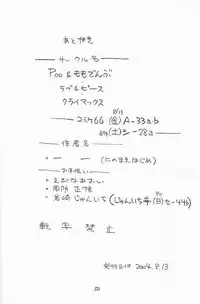 あとがき
サークル名
Poo&ももでんぶ
ラブ&ピース
クライマックス
8/13
コミケ66 (金) A-33a.b
8/14 (土) シ-28a
作者名
・一 一 (にのまえはじめ)
お手伝い
・岩崎じゅんいち (じゅんいち亭 (日) セ-44b)
転写禁止
発行日付 2004.8.13
50